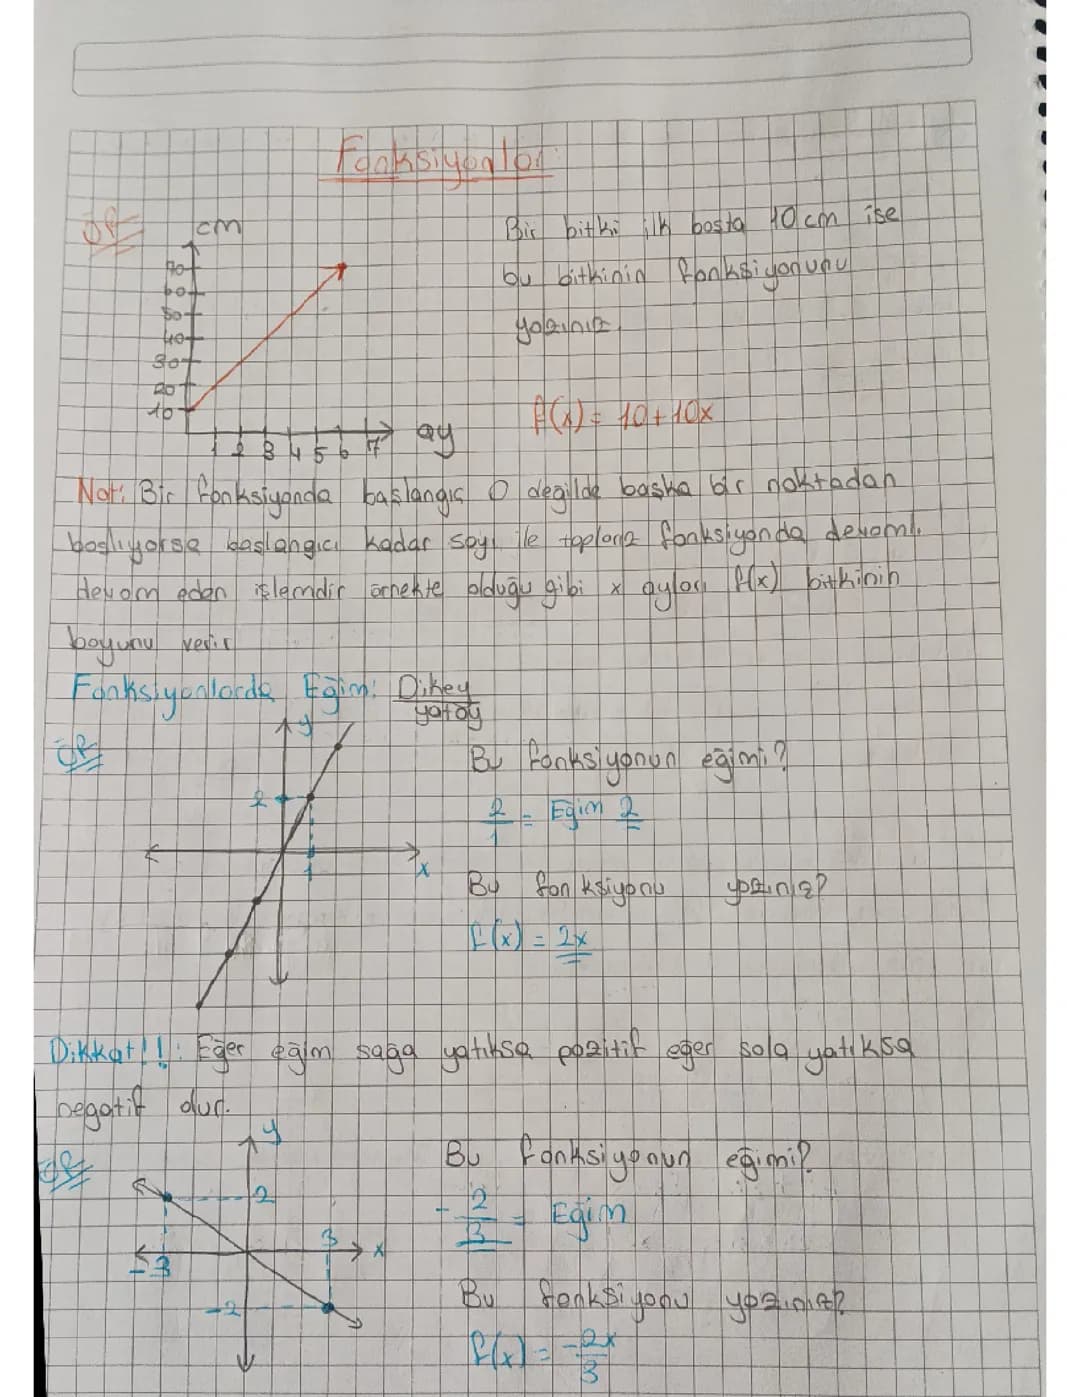 Fonksiyonlar
ÖR
cm
Bir bitki ilk başta 10 cm ise
bu bitkinin fonksiyonunu
yazınız.
70
60
50
40
30
20
10
1 2 3 4 5 6 7 ay
f(x) = 10 + 10x
Not: Bir fonksiyonda başlangıç 0 değilde başka bir noktadan
başlıyorsa başlangıcı kadar sayı ile toplanız fonksiyonda devamlı
devam eden işlemdir örnekte olduğu gibi x ayları f(x) bitkinin
boyunu verir
Fonksiyonlarda Eğim: Dikey
yatay
ÖR
y
Bu fonksiyonun eğimi?
2
2/1 = Eğim 2
x
1
Bu fonksiyonu yazınız?
f(x) = 2x
Dikkat!!: Eğer eğim sağa yatıksa pozitif eğer sola yatıksa
negatif olur.
ÖR
y
Bu fonksiyonun eğimi?
2
-2/3 = Eğim
3
x
-3
-2
Bu fonksiyonu yazınız?
f(x) = -2x/3